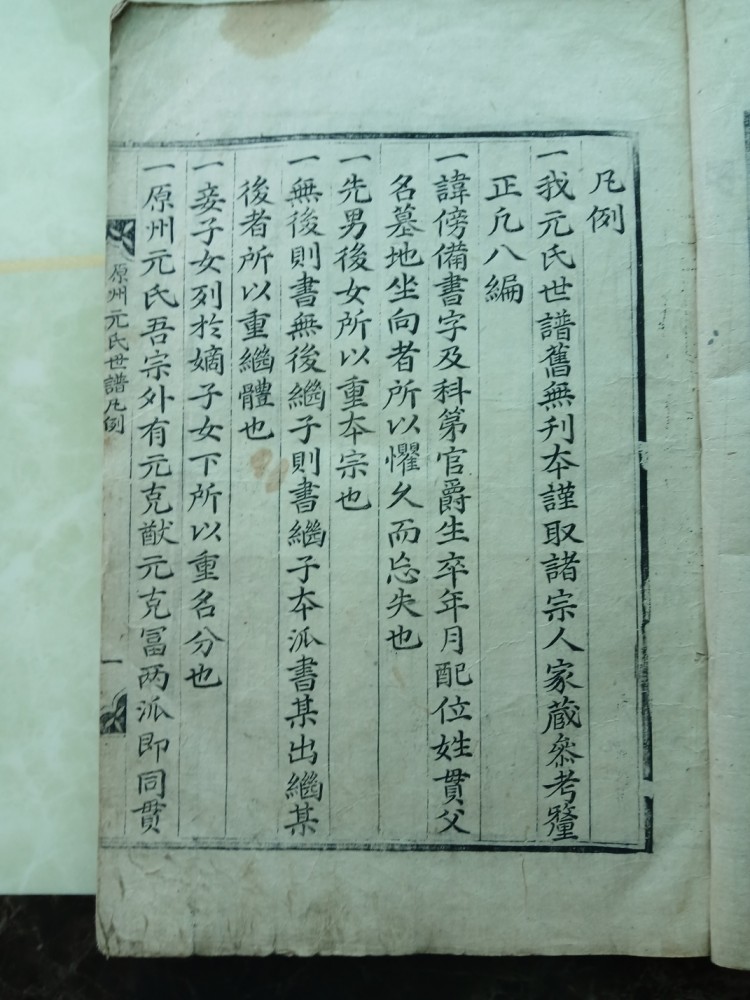 凡例
一我元氏世譜舊無刊本謹取諸宗人家蔵叅考釐
正凡八編
一諱傍備書字及科第官爵生卒年月配位姓貫父
名墓地坐向者所以懼久而忘失也
一先男後女所以重本宗也
一無後則書無後繼子則書繼子本派書某出繼某
後者所以重繼體也
一妾子女列於嫡子女下所以重名分也
一原州元氏吾宗外有元克猷元克冨两派即同貫
原州元氏世譜凡例
一